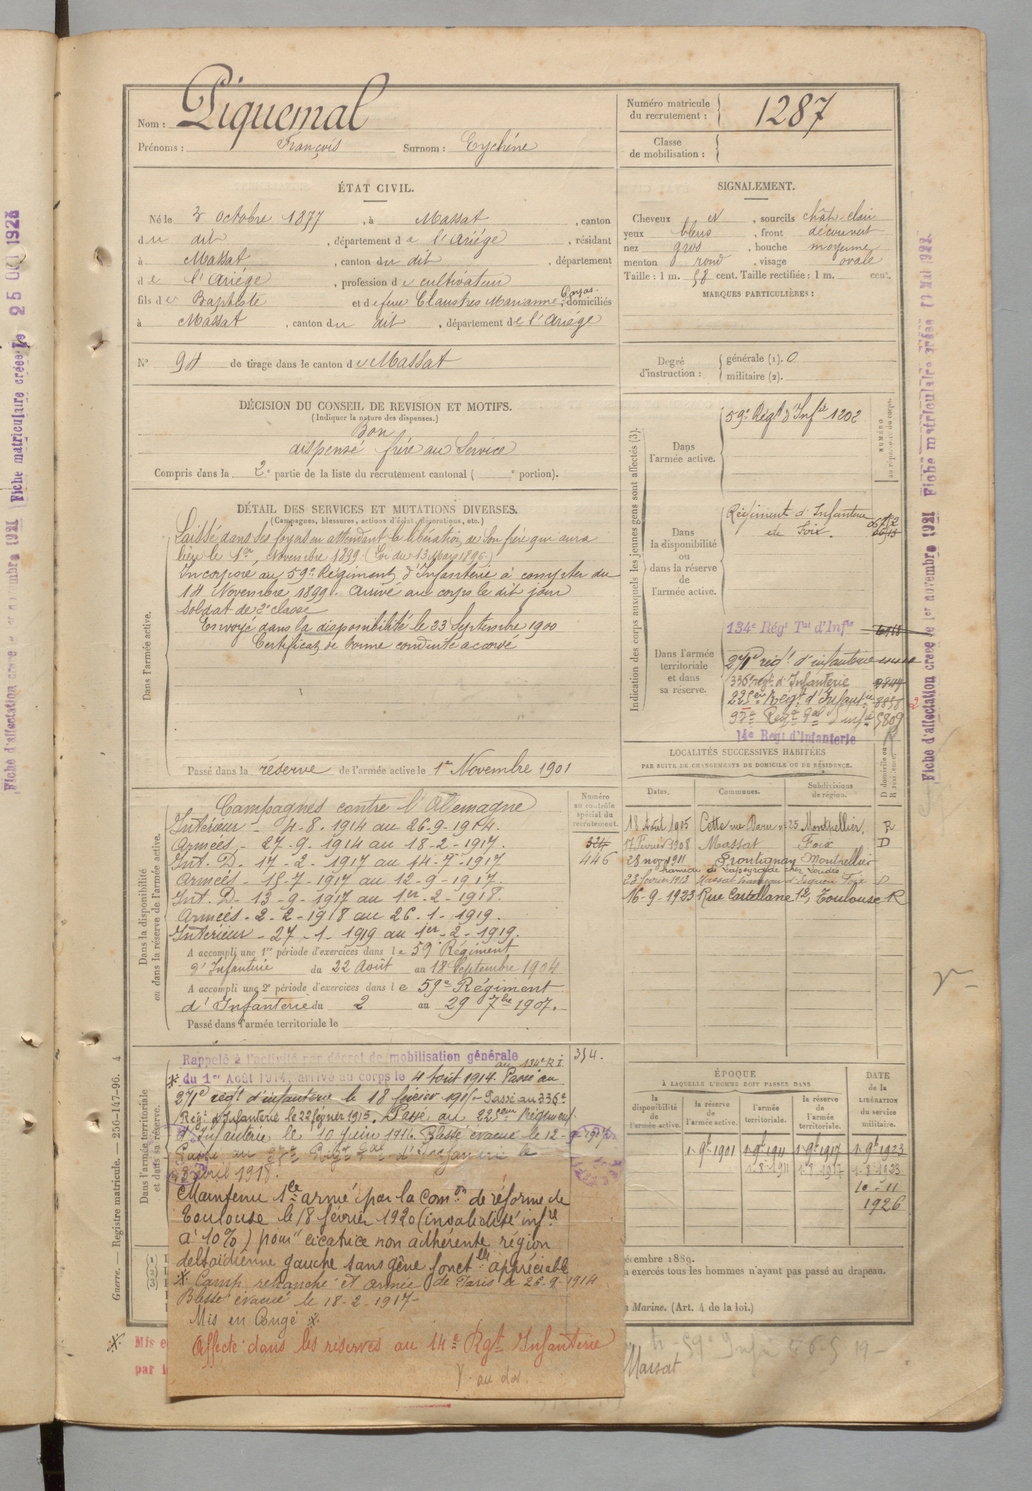 Nom : Piquemal
Prénoms : François Surnom : Eychéne
Numéro matricule du recrutement : 1287
Classe de mobilisation :
ÉTAT CIVIL.
Né le 2 octobre 1877, à Massat, canton
du dit, département de l'Ariége, résidant
à Massat, canton du dit, département
de l'Ariége, profession de cultivateur
fils de Baptiste et de feue Claustres Marianne, domiciliés
à Massat, canton du dit, département de l'Ariége
N° 94 de tirage dans le canton de Massat
SIGNALEMENT.
Cheveux et, sourcils chât-clair
yeux bleus, front découvert
nez gros, bouche moyenne
menton rond, visage ovale
Taille : 1 m. 58 cent. Taille rectifiée : 1 m. cent.
MARQUES PARTICULIÈRES :
Degré d'instruction : générale (1). 0
militaire (2).
DÉCISION DU CONSEIL DE REVISION ET MOTIFS.
(Indiquer la nature des dispenses.)
Bon
dispensé frère au Service
Compris dans la 2e partie de la liste du recrutement cantonal ( e portion).
DÉTAIL DES SERVICES ET MUTATIONS DIVERSES.
(Campagnes, blessures, actions d'éclat, décorations, etc.)
Dans l'armée active.
Laissé dans ses foyers en attendant la libération de son frère qui aura
lieu le 1er Novembre 1899 (Loi du 13 Mars 1896)
Incorporé au 59e Régiment d'Infanterie à compter du
14 Novembre 1899. Arrivé au corps le dit jour
Soldat de 2e classe
Envoyé dans la disponibilité le 23 Septembre 1900
Certificat de bonne conduite accordé
Passé dans la réserve de l'armée active le 1er Novembre 1901
Indication des corps auxquels les jeunes gens sont affectés (3).
Dans l'armée active.
59e Régt d'Infie 1202
Dans la disponibilité ou dans la réserve de l'armée active.
Régiment d'Infanterie
de Foix.
Dans l'armée territoriale et dans sa réserve.
134e Régt Tal d'Infie
271e régt d'infanterie
336e regt d'Infanterie
225e Régt d'Infantie
14e Régt d'Infanterie
LOCALITÉS SUCCESSIVES HABITÉES
PAR SUITE DE CHANGEMENTS DE DOMICILE OU DE RÉSIDENCE.
Dates. Communes. Subdivisions de région. D domicile ou R résidence.
18 Août 1905 Cette rue 25 Montpellier R
17 Février 1908 Massat Foix D
28 nov 1911 Frontignan Montpellier
23 février 1913 Massat Foix D
16-9-1923 Rue Castellane 12, Toulouse R
Dans la disponibilité ou dans la réserve de l'armée active.
Campagnes contre l'Allemagne
Intérieur - 4-8-1914 au 26-9-1914.
Armées - 27-9-1914 au 18-2-1917.
Int. D. 17-2-1917 au 14-7-1917
Armées - 15-7-1917 au 12-9-1917.
Int. D - 13-9-1917 au 1er-2-1918.
Armées - 2-2-1918 au 26-1-1919.
Intérieur - 27-1-1919 au 1er-2-1919.
Numéro au contrôle spécial du recrutement.
324
446
A accompli une 1re période d'exercices dans le 59e Régiment
d'Infanterie du 22 Août au 18 Septembre 1904
A accompli une 2e période d'exercices dans le 59e Régiment
d'Infanterie du 2 au 29 7bre 1907.
Passé dans l'armée territoriale le
Dans l'armée territoriale et dans sa réserve.
Rappelé à l'activité par décret de mobilisation générale
au 134e R.I
du 1er Août 1914, arrivé au corps le 4 Août 1914. Passé au
271e régt d'infanterie le 18 février 1915 - Passé au 336e
Régt d'Infanterie le 22 février 1915. Passé au 225eme Régiment
d'Infanterie le 10 juin 1916. Blessé évacué le 12-9-1917
Maintenu 1ce armé par la Comon de réforme de
Toulouse le 18 février 1920 (invalidité infre
à 10%) pour cicatrice non adhérente région
deltoïdienne gauche sans gêne fonctlle appréciable
Camp retranché et Armée de Paris le 26-9-1914
Blessé évacué le 18-2-1917-
Mis en Congé
Affecté dans les réserves au 14e Rgt Infanterie
V au dos.
ÉPOQUE
À LAQUELLE L'HOMME DOIT PASSER DANS
la disponibilité de l'armée active. la réserve de l'armée active. l'armée territoriale. la réserve de l'armée territoriale.
DATE de la LIBÉRATION du service militaire.
1-9bre 1901 1-9bre 1911 1-9bre 1917 1-9bre 1923
1926
écembre 1889.
a exercés tous les hommes n'ayant pas passé au drapeau.
a Marine. (Art. 4 de la loi.)
Massat
Guerre. — Registre matricule. — 256-147-96. 4
Mis e
par l
Fiche matriculaire créée le 25 Oct 1923
Fiche d'affectation créée le 1er novembre 1921
Fiche matriculaire créée